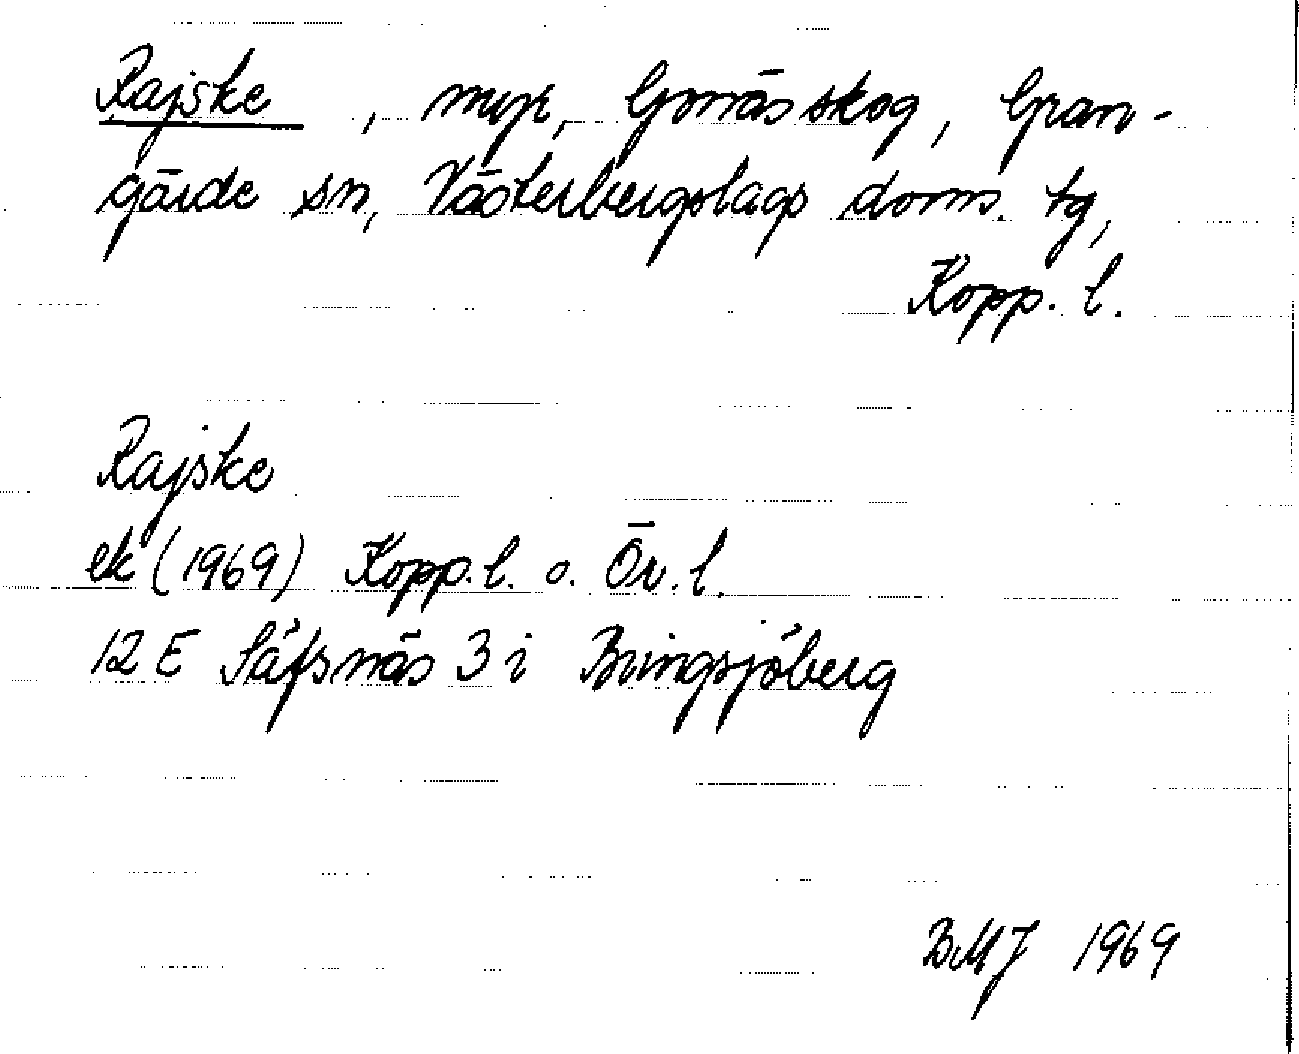 Rajske, myr, Gonäs skog, Gran-
gärde sn, Västerbergslags doms. tg,
Kopp. l.
Rajske
ek (1969) Kopp. l. o. Ör. l.
12 E Säfsnäs 3 i Bringsjöberg
BMJ 1969